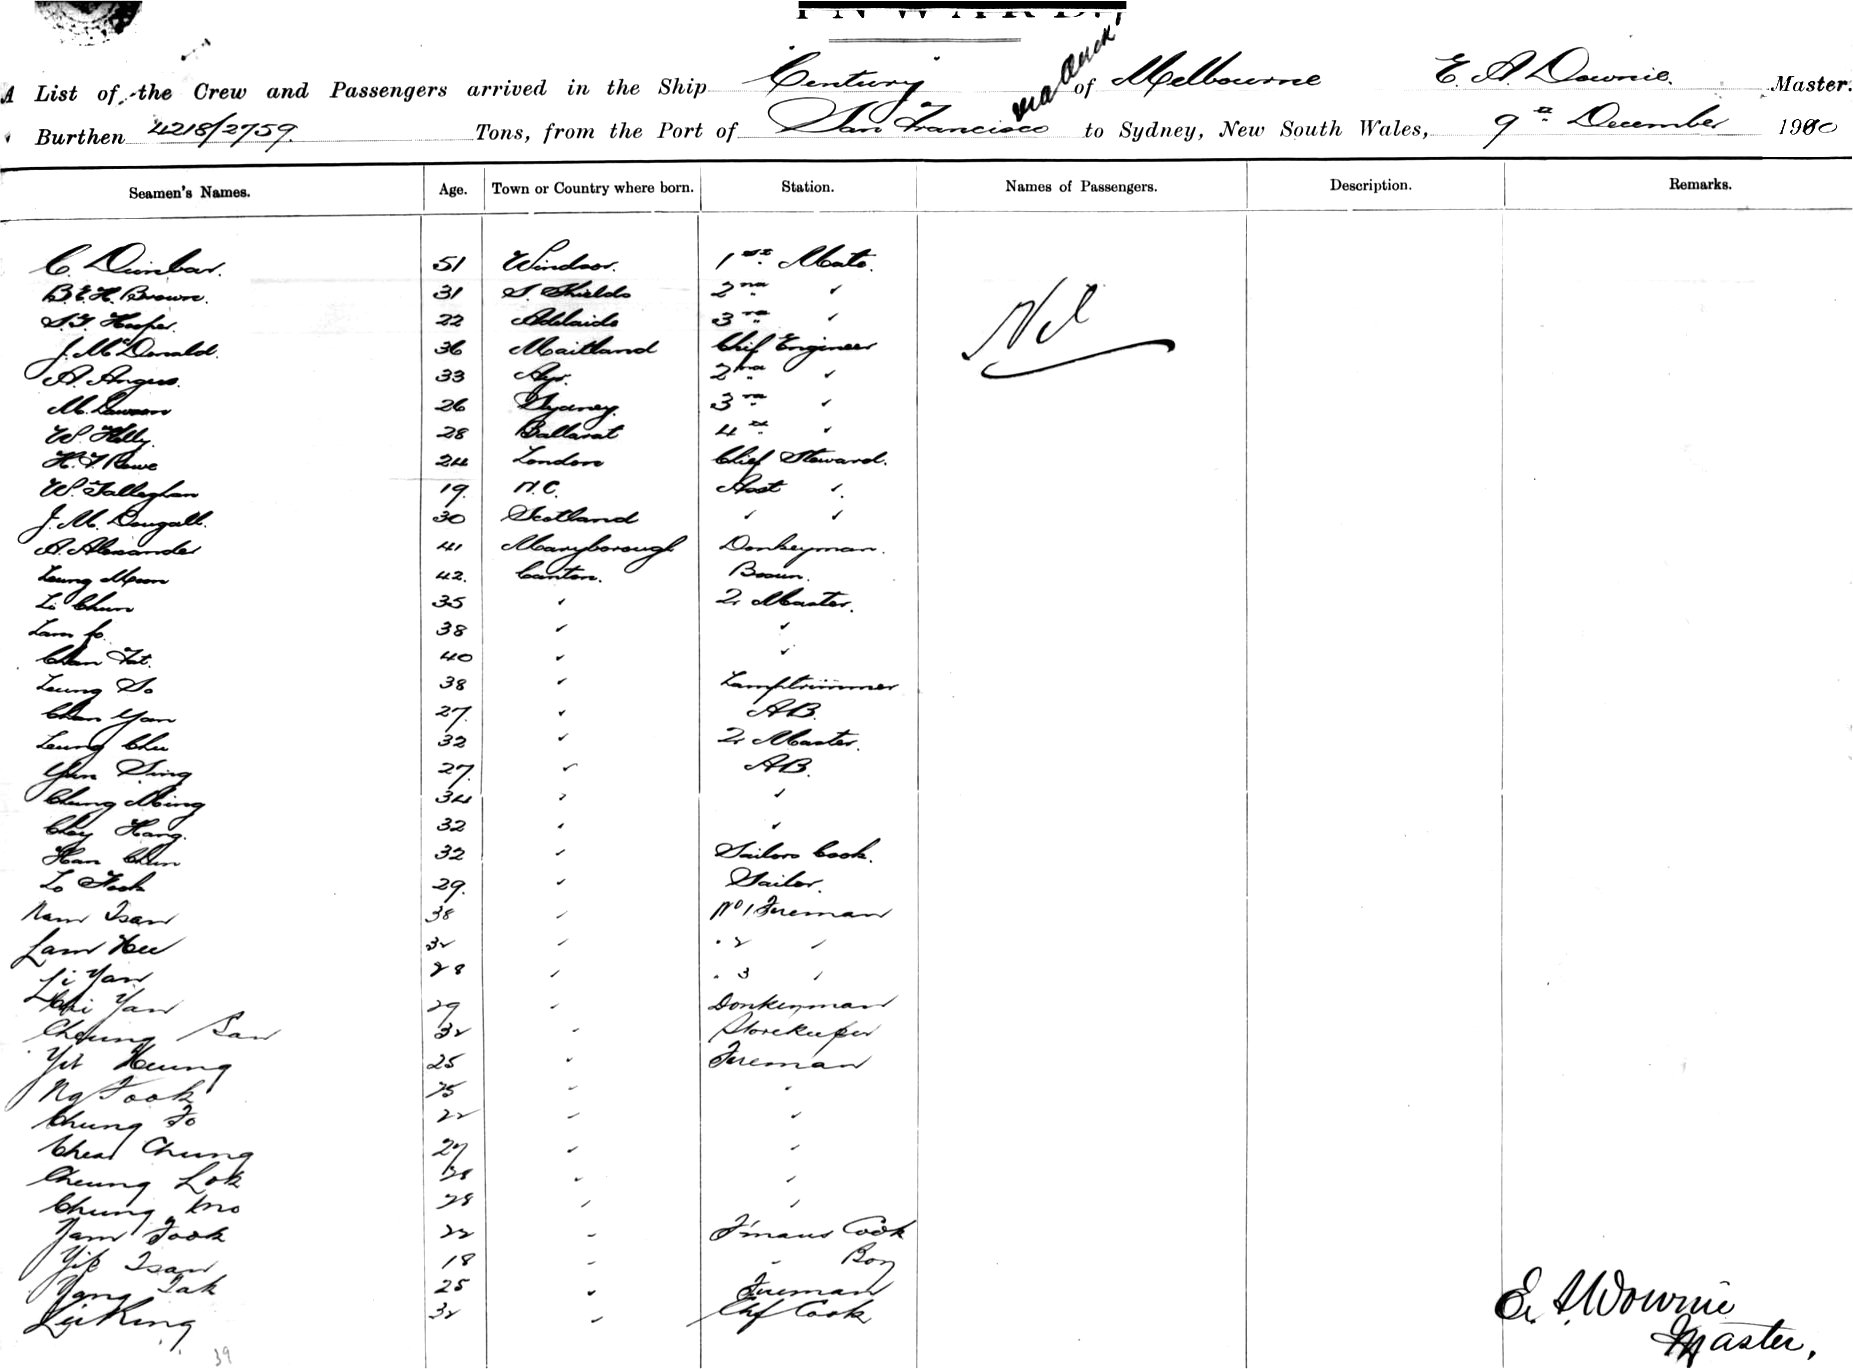 INWARD.
A List of the Crew and Passengers arrived in the Ship Century of Melbourne E. A. Downie. Master.
via Auck
Burthen 4218/2759. Tons, from the Port of San Francisco to Sydney, New South Wales, 9th December 1900
Seamen's Names. Age. Town or Country where born. Station. Names of Passengers. Description. Remarks.
C. Dunbar. 51 Windsor. 1st Mate.
B.E.H. Brown. 31 S. Shields 2nd "
S.J. Hooper. 22 Adelaide 3rd "
Nil
J. McDonald. 36 Maitland Chif Engineer
A. Angus. 33 Ayr. 2nd "
M. Dawson 26 Sydney. 3rd "
W. Holly. 28 Ballarat 4th "
H. J. Rowe 24 London Chief Steward.
W. Talleghan 19. N.C. Asst "
J. M. Dougall. 30 Scotland " "
A. Alexander 41 Maryborough Donkeyman.
Leung Moon 42. Canton. Bosun.
Li Chun 35 " Qr Master.
Lam Fo. 38 " "
Chan Fat. 40 " "
Leung So 38 " Lamptrimmer
Chan Yan 27. " AB.
Leung Chu 32 " Qr Master.
Yun Sing 27. " AB.
Chung Ming 34 " "
Choy Hang. 32 " "
Han Chun 32 " Sailors Cook.
Lo Fook 29. " Sailor.
Nam Tsan 38 " No 1 Fireman
Lam Hee 32 " " 2 "
Li Yan 28 " " 3 "
Chi Yan 29 " Donkeyman
Cheung San 32 " Storekeeper
Yit Heung 25 " Fireman
Ng Fook 25 " "
Chung Fo 22 " "
Cheas Chung 27 " "
Cheung Lok 28 " "
Chung 28 " "
Yam Fook 22 " F'mans Cook
Yip Tsan 18 " " Boy
Yang Tak 25 " Fireman
Lui King 32 " Chf Cook
E. A. Downie
Master.
39